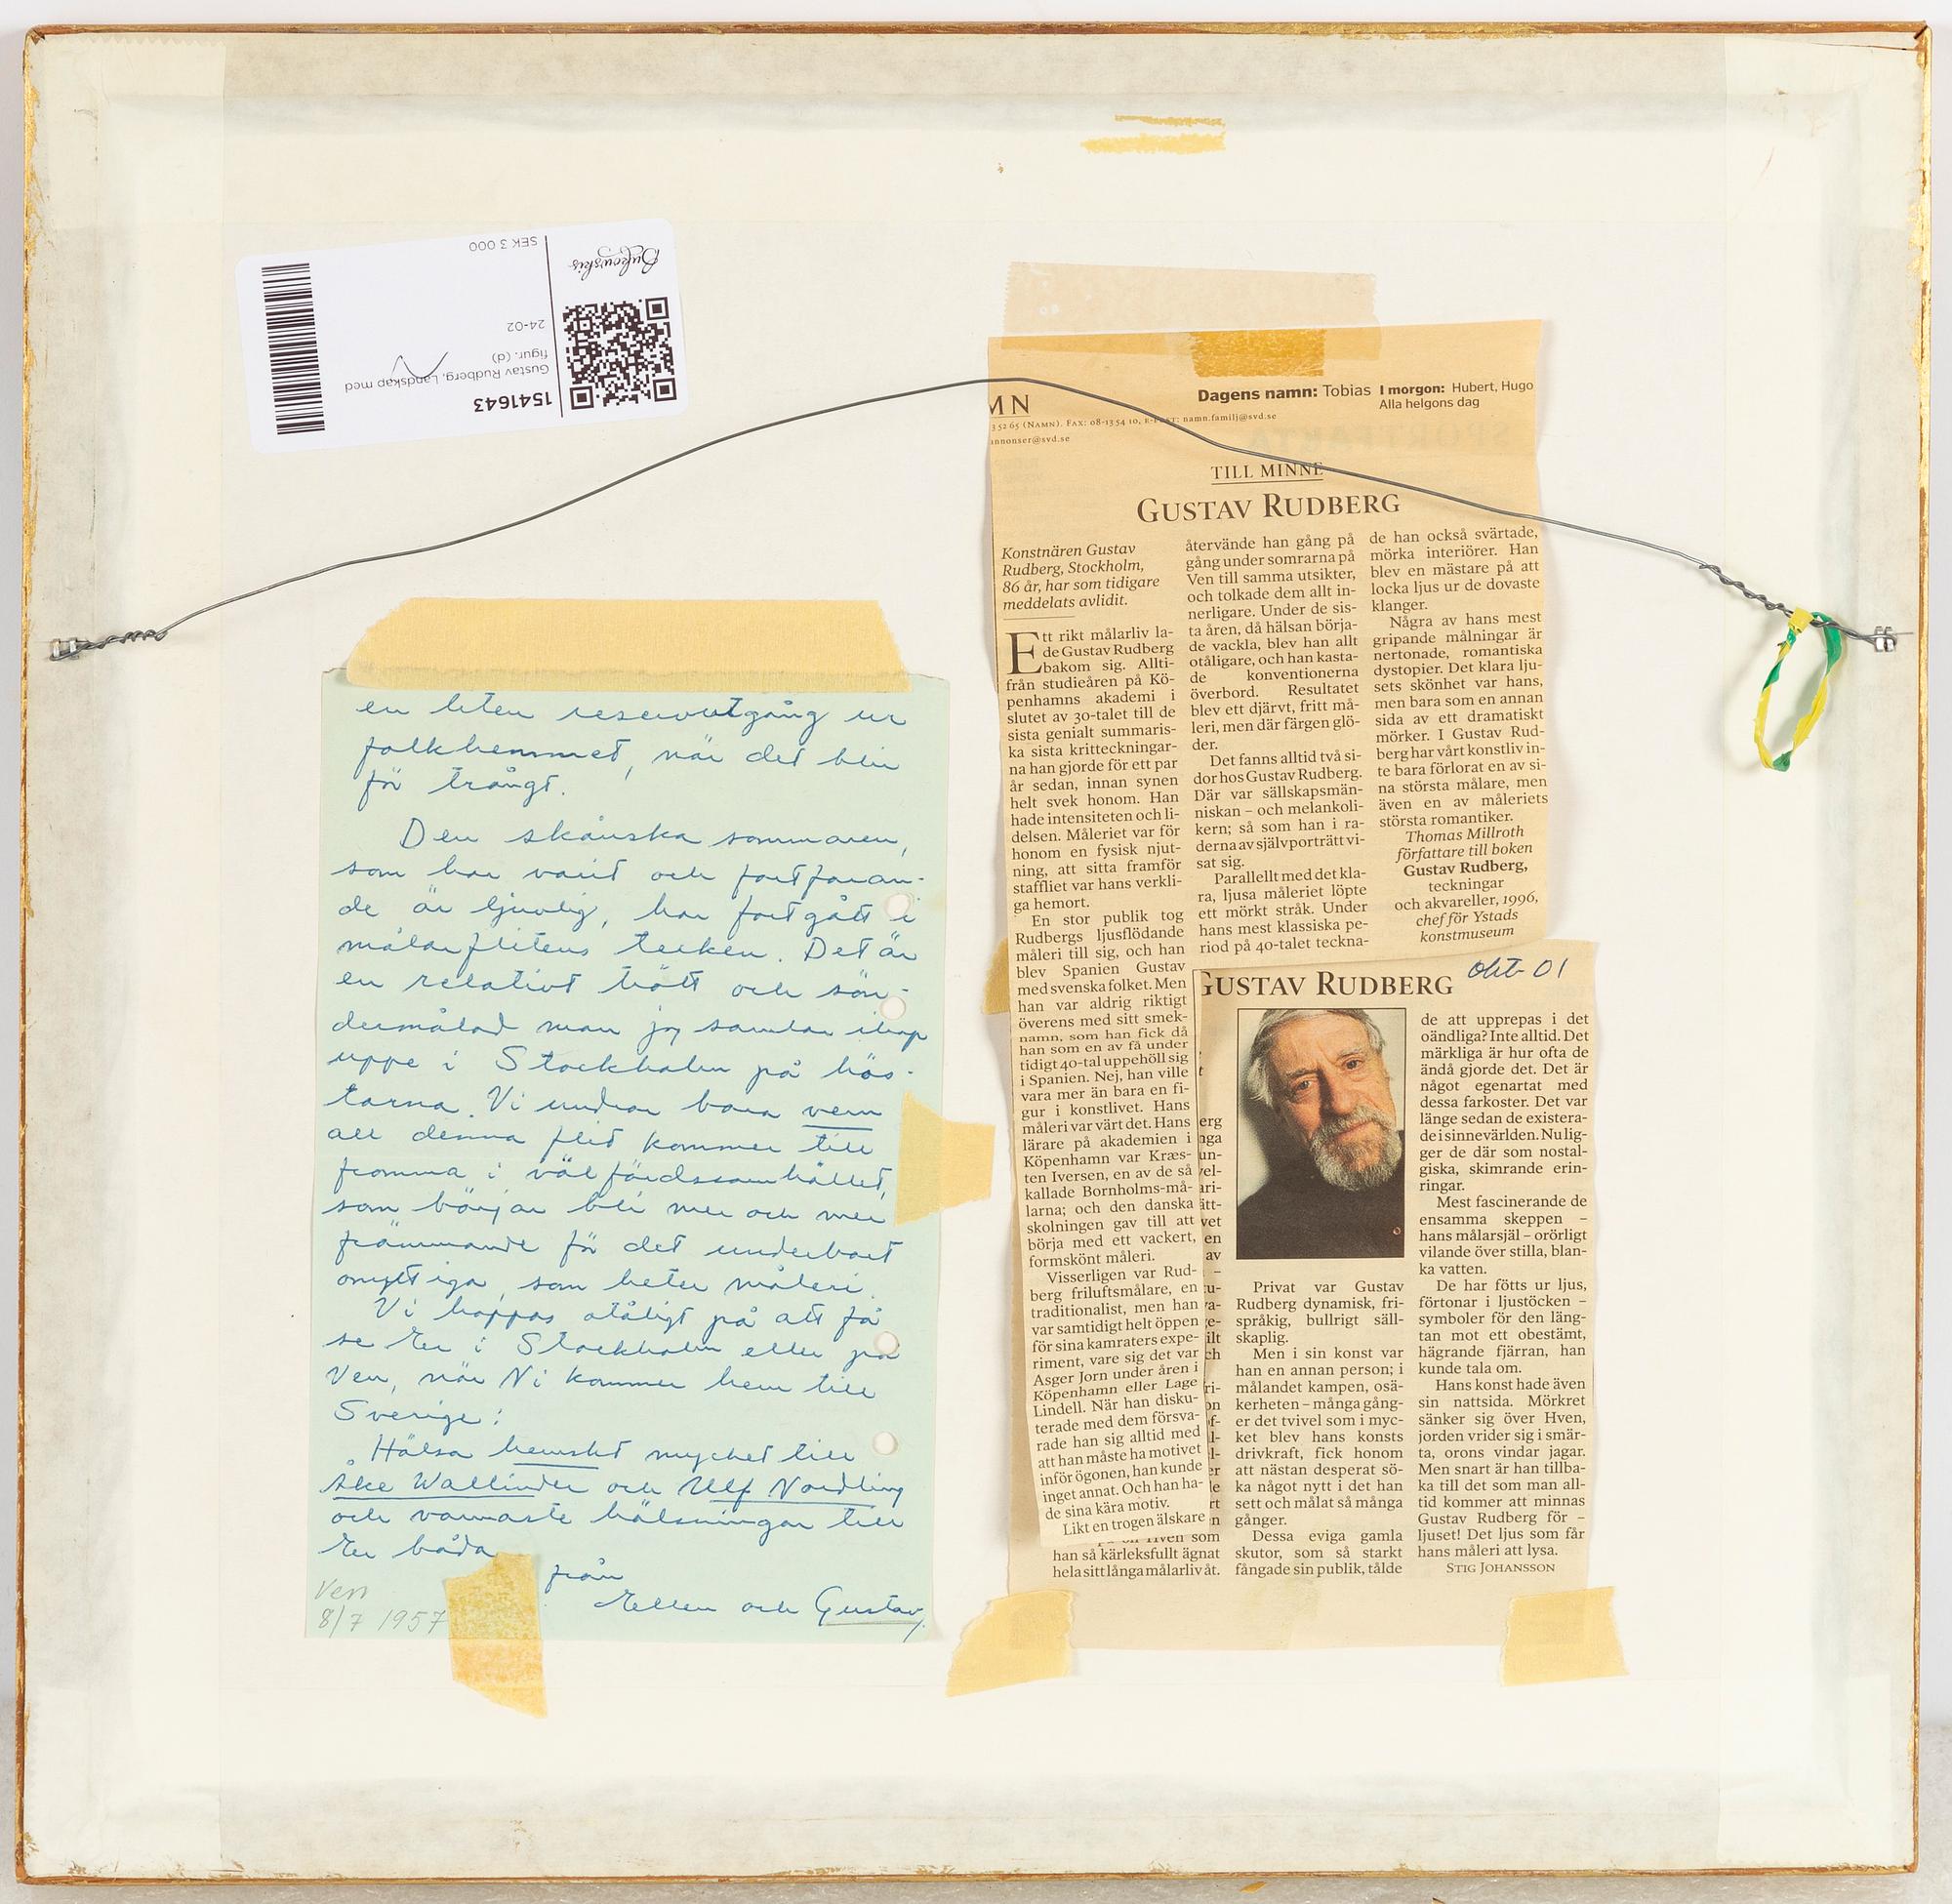 Bukowskis
SEK 3 000
24-02
Gustav Rudberg, Landskap med
figur. (d)
1541643
en liten reservutgång ur
folkhemmet, när det blir
för trångt.
Den skånska sommaren,
som har varit och fortfaran-
de är ljuvlig, har fortgått i
målarflitens tecken. Det är
en relativt trött och sön-
dermålad man jag samlar ihop
uppe i Stockholm på hös-
tarna. Vi undrar bara vem
all denna flit kommer till
fromma i välfärdssamhället,
som börjar bli mer och mer
främmande för det underbart
onyttiga, som heter måleri.
Vi hoppas otåligt på att få
se Er i Stockholm eller på
Ven, när Ni kommer hem till
Sverige!
Hälsa hemskt mycket till
Åke Wallinder och Ulf Nordling
och varmaste hälsningar till
Er båda
från
Ellen och Gustav.
Ven
8/7 1957
MN
Dagens namn: Tobias I morgon: Hubert, Hugo
Alla helgons dag
3 52 65 (NAMN). FAX: 08-13 54 10, E-POST: namn.familj@svd.se
annonser@svd.se
TILL MINNE
GUSTAV RUDBERG
Konstnären Gustav
Rudberg, Stockholm,
86 år, har som tidigare
meddelats avlidit.
Ett rikt målarliv la-
de Gustav Rudberg
bakom sig. Allti-
från studieåren på Kö-
penhamns akademi i
slutet av 30-talet till de
sista genialt summaris-
ka sista kritteckningar-
na han gjorde för ett par
år sedan, innan synen
helt svek honom. Han
hade intensiteten och li-
delsen. Måleriet var för
honom en fysisk njut-
ning, att sitta framför
staffliet var hans verkli-
ga hemort.
En stor publik tog
Rudbergs ljusflödande
måleri till sig, och han
blev Spanien Gustav
med svenska folket. Men
han var aldrig riktigt
överens med sitt smek-
namn, som han fick då
han som en av få under
tidigt 40-tal uppehöll sig
i Spanien. Nej, han ville
vara mer än bara en fi-
gur i konstlivet. Hans
måleri var värt det. Hans
lärare på akademien i
Köpenhamn var Kræs-
ten Iversen, en av de så
kallade Bornholms-må-
larna; och den danska
skolningen gav till att
börja med ett vackert,
formskönt måleri.
Visserligen var Rud-
berg friluftsmålare, en
traditionalist, men han
var samtidigt helt öppen
för sina kamraters expe-
riment, vare sig det var
Asger Jorn under åren i
Köpenhamn eller Lage
Lindell. När han disku-
terade med dem försva-
rade han sig alltid med
att han måste ha motivet
inför ögonen, han kunde
inget annat. Och han ha-
de sina kära motiv.
Likt en trogen älskare
återvände han gång på
gång under somrarna på
Ven till samma utsikter,
och tolkade dem allt in-
nerligare. Under de sis-
ta åren, då hälsan börja-
de vackla, blev han allt
otåligare, och han kasta-
de konventionerna
överbord. Resultatet
blev ett djärvt, fritt må-
leri, men där färgen glö-
der.
Det fanns alltid två si-
dor hos Gustav Rudberg.
Där var sällskapsmän-
niskan – och melankoli-
kern; så som han i ra-
derna av självporträtt vi-
sat sig.
Parallellt med det kla-
ra, ljusa måleriet löpte
ett mörkt stråk. Under
hans mest klassiska pe-
riod på 40-talet teckna-
de han också svärtade,
mörka interiörer. Han
blev en mästare på att
locka ljus ur de dovaste
klanger.
Några av hans mest
gripande målningar är
nertonade, romantiska
dystopier. Det klara lju-
sets skönhet var hans,
men bara som en annan
sida av ett dramatiskt
mörker. I Gustav Rud-
berg har vårt konstliv in-
te bara förlorat en av si-
na största målare, men
även en av måleriets
största romantiker.
Thomas Millroth
författare till boken
Gustav Rudberg,
teckningar
och akvareller, 1996,
chef för Ystads
konstmuseum
GUSTAV RUDBERG
okt 01
Hven som
han så kärleksfullt ägnat
hela sitt långa målarliv åt.
Privat var Gustav
Rudberg dynamisk, fri-
språkig, bullrigt säll-
skaplig.
Men i sin konst var
han en annan person; i
målandet kampen, osä-
kerheten – många gång-
er det tvivel som i myc-
ket blev hans konsts
drivkraft, fick honom
att nästan desperat sö-
ka något nytt i det han
sett och målat så många
gånger.
Dessa eviga gamla
skutor, som så starkt
fångade sin publik, tålde
de att upprepas i det
oändliga? Inte alltid. Det
märkliga är hur ofta de
ändå gjorde det. Det är
något egenartat med
dessa farkoster. Det var
länge sedan de existera-
de i sinnevärlden. Nu lig-
ger de där som nostal-
giska, skimrande erin-
ringar.
Mest fascinerande de
ensamma skeppen –
hans målarsjäl – orörligt
vilande över stilla, blan-
ka vatten.
De har fötts ur ljus,
förtonar i ljustöcken –
symboler för den läng-
tan mot ett obestämt,
hägrande fjärran, han
kunde tala om.
Hans konst hade även
sin nattsida. Mörkret
sänker sig över Hven,
jorden vrider sig i smär-
ta, orons vindar jagar.
Men snart är han tillba-
ka till det som man all-
tid kommer att minnas
Gustav Rudberg för –
ljuset! Det ljus som får
hans måleri att lysa.
STIG JOHANSSON